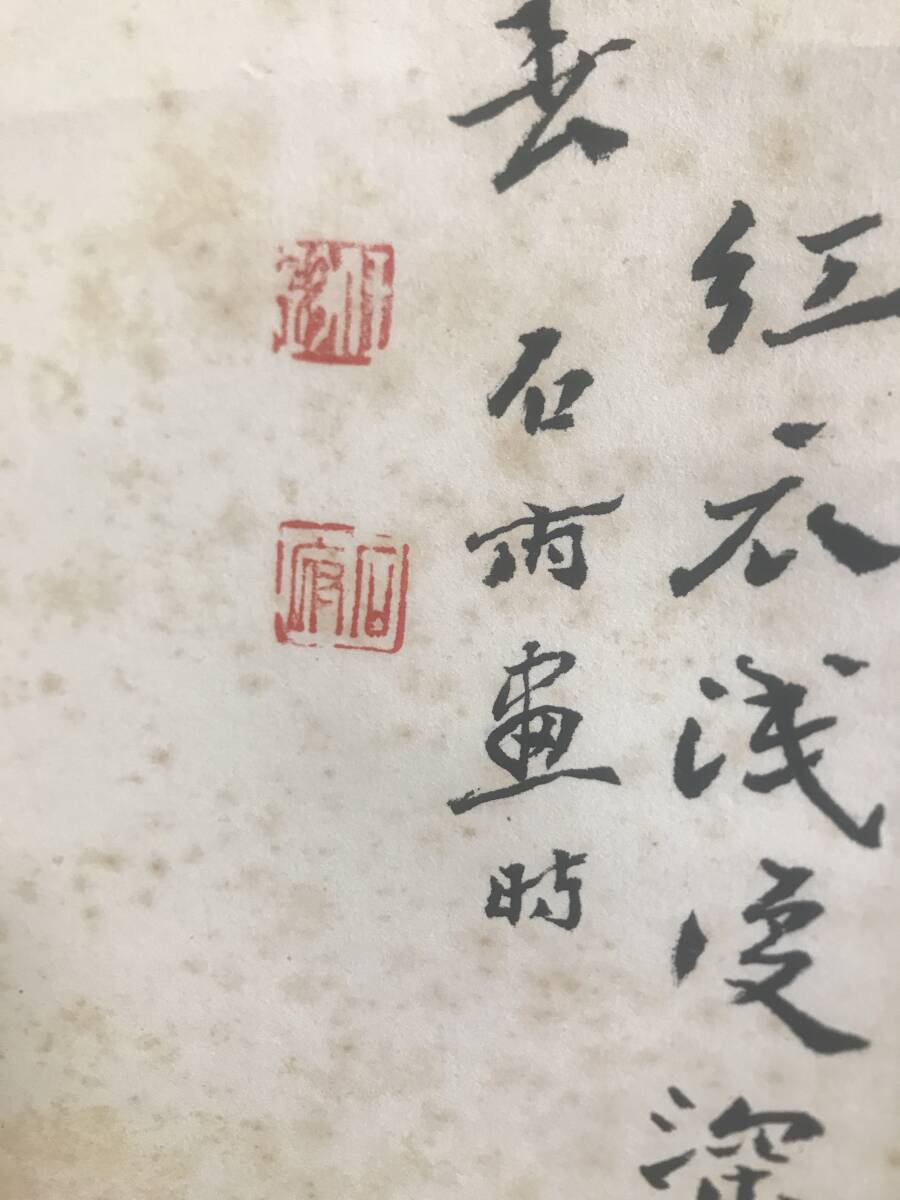 红衣浅复深
去 石雨画時